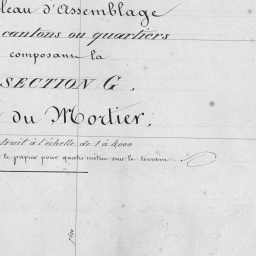 leau d'Assemblage
cantons ou quartiers
composant la
SECTION G.
du Mortier.
duit à l'échelle de 1 à 4000
le papier pour quatre mètres sur le terrain.